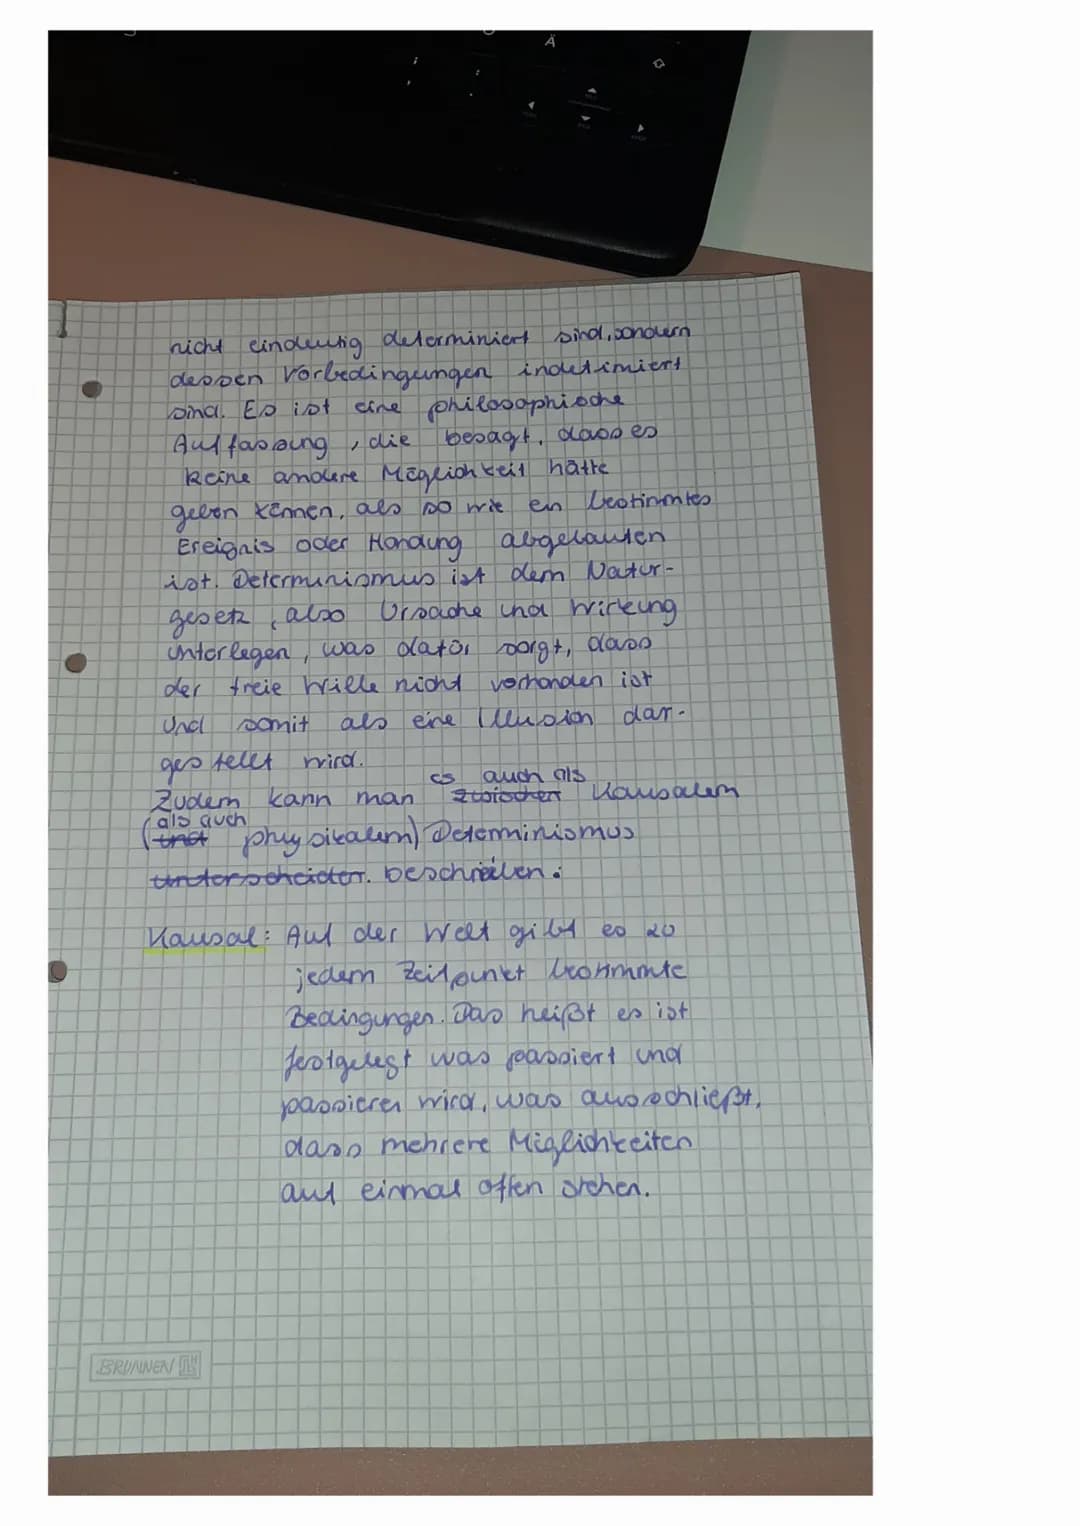 Ä
nicht eindeutig determiniert sind, sondern
dessen Vorbedingungen indetimiert
sind. Es ist eine philosophische
Auffassung, die besagt, dass es
keine andere Möglichkeit hätte
geben können, als so wie ein bestimmtes
Ereignis oder Handung abgelaufen
ist. Determinismus ist dem Natur-
gesetz, also Ursache und Wirkung
unterlegen, was dafür sorgt, dass
der freie Wille nicht vorhanden ist
und somit als eine Illusion dar-
gestellt wird.
es auch als
Zudem kann man zwischen Kausalem
als auch
(und physikalem) Determinismus
unterscheiden. beschreiben:
Kausal: Auf der Welt gibt es zu
jedem Zeitpunkt bestimmte
Bedingungen. Das heißt es ist
festgelegt was passiert und
passieren wird, was ausschließt,
dass mehrere Möglichkeiten
auf einmal offen stehen.
BRUNNEN